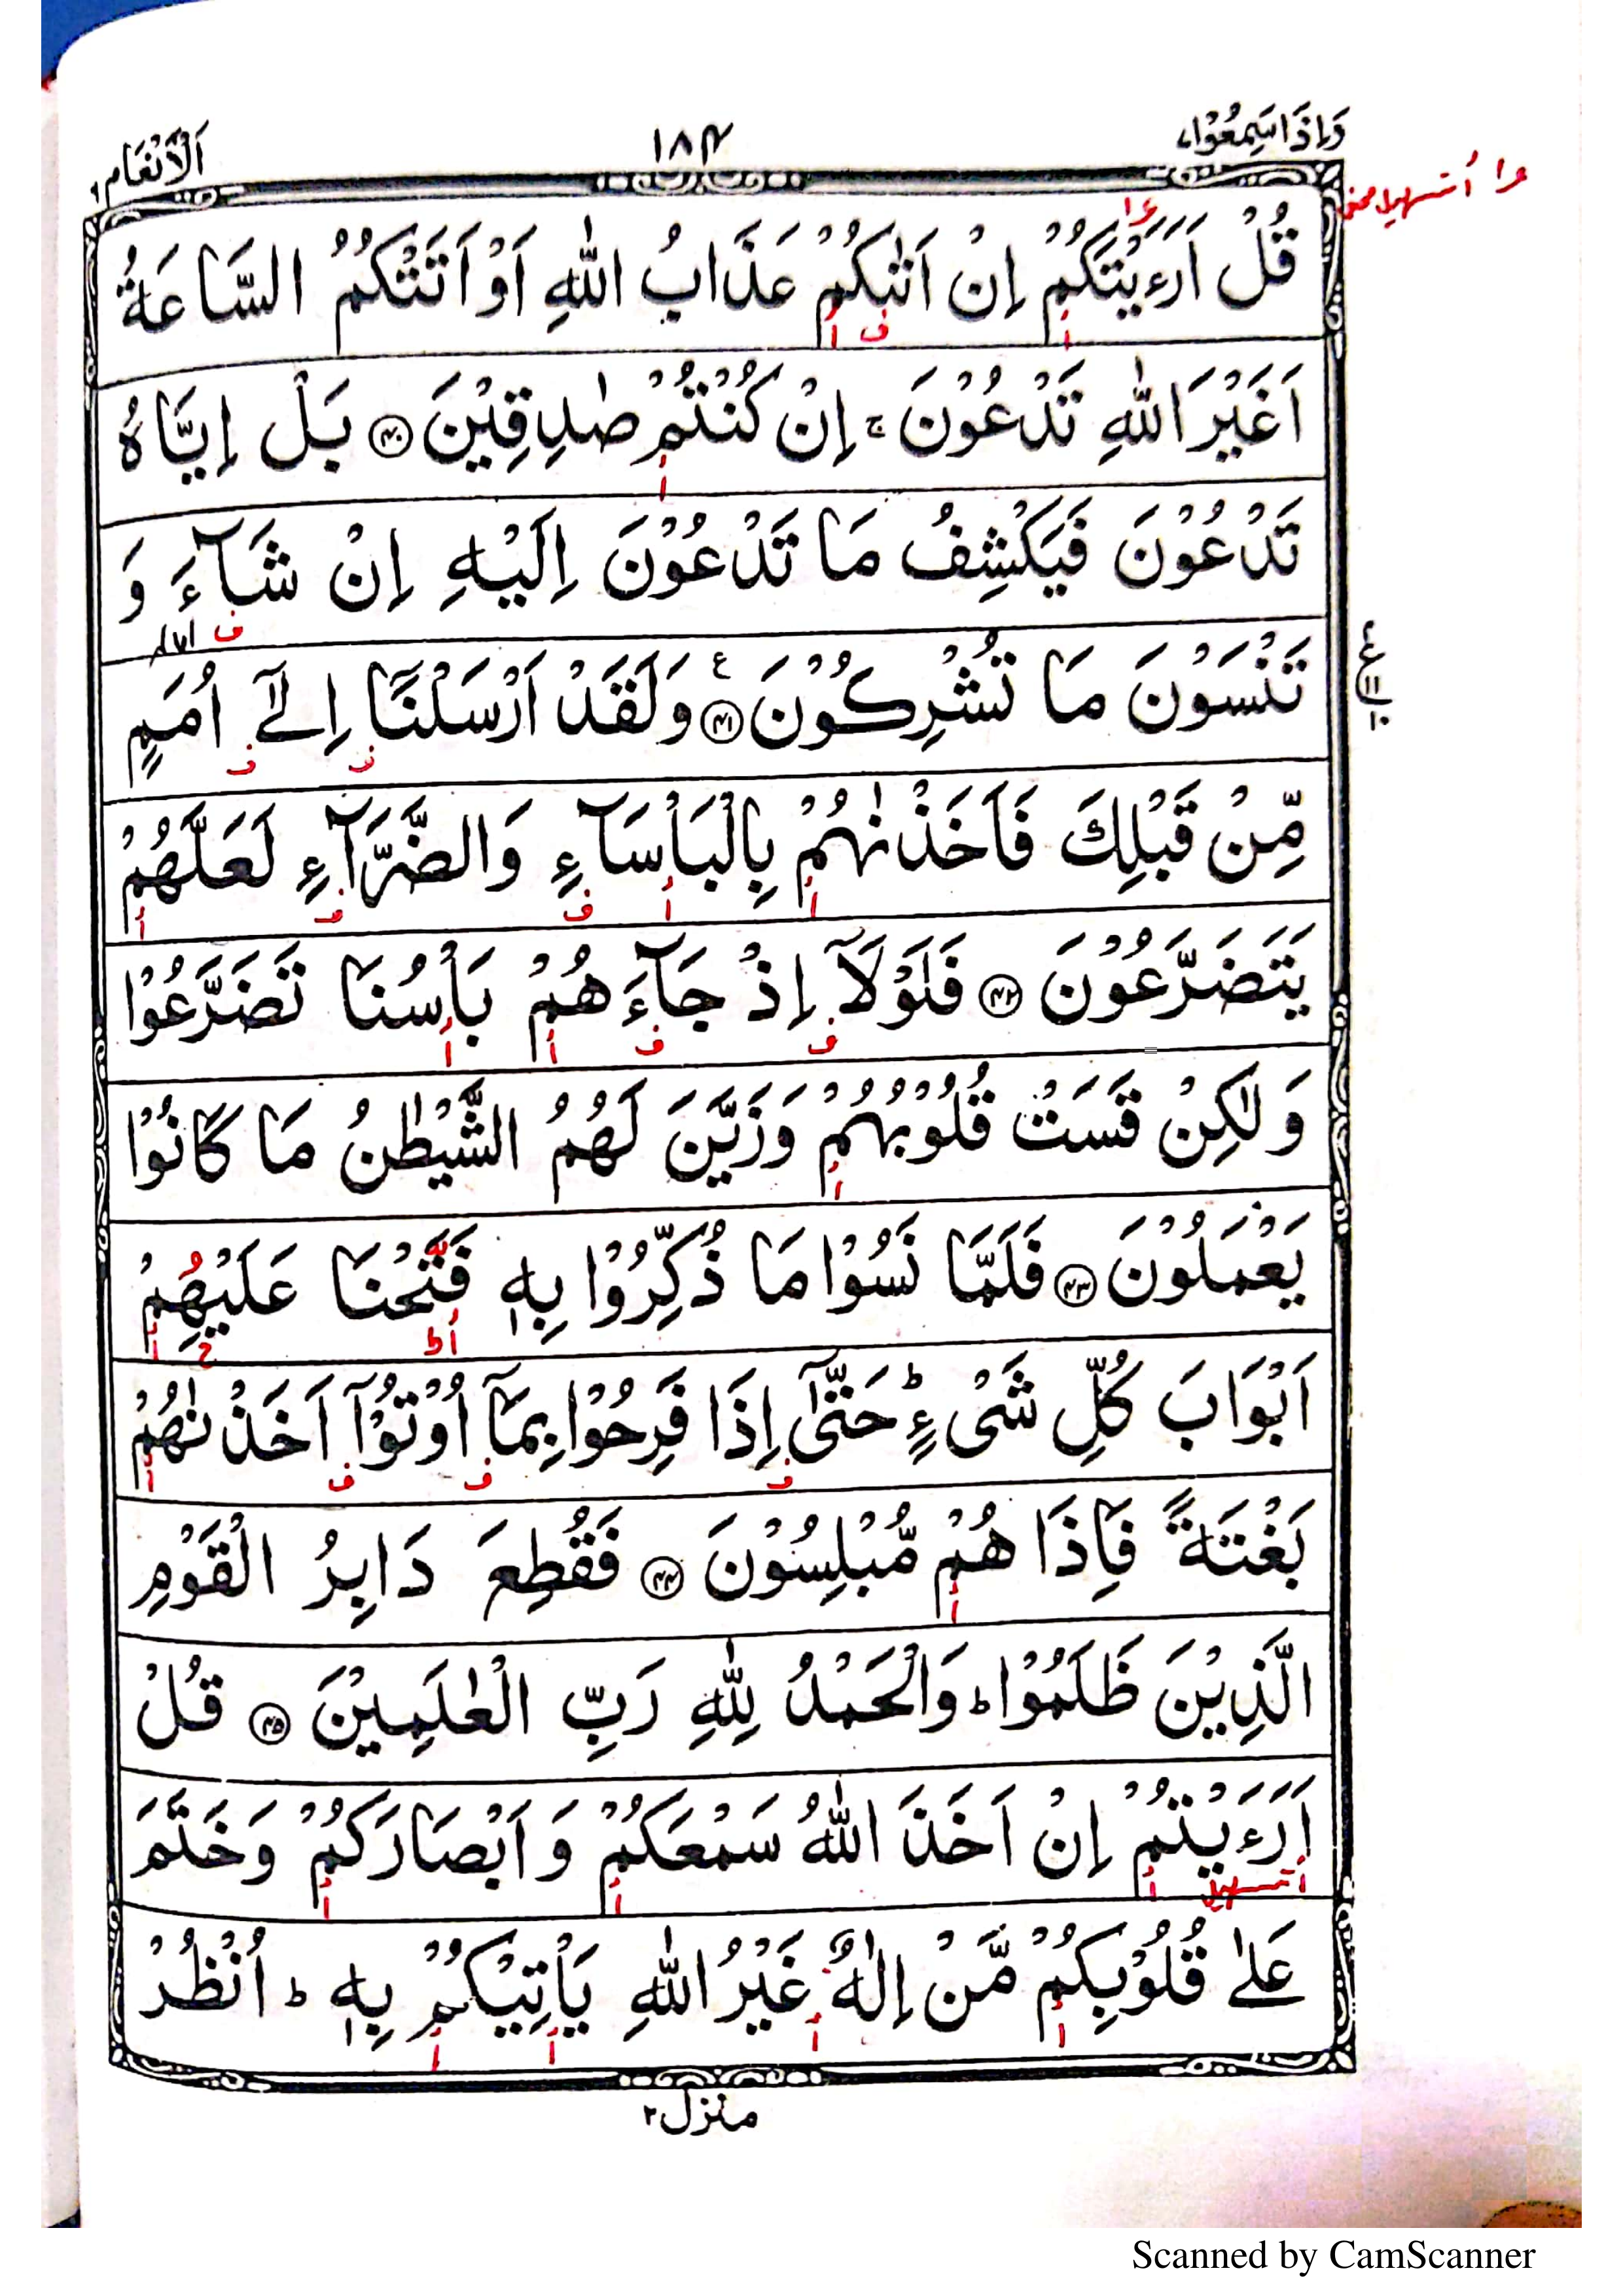 وَاِذَاسَمِعُوْا٧
١٨٤
اَلْاَنْعَام٦
قُلْ اَرَءَيْتَكُمْ اِنْ اَتٰىكُمْ عَذَابُ اللّٰهِ اَوْ اَتَتْكُمُ السَّاعَةُ
اَغَيْرَ اللّٰهِ تَدْعُوْنَ ۚ اِنْ كُنْتُمْ صٰدِقِيْنَ ﴿٤٠﴾ بَلْ اِيَّاهُ
تَدْعُوْنَ فَيَكْشِفُ مَا تَدْعُوْنَ اِلَيْهِ اِنْ شَآءَ وَ
تَنْسَوْنَ مَا تُشْرِكُوْنَ ﴿٤١﴾ ع وَلَقَدْ اَرْسَلْنَآ اِلٰٓى اُمَمٍ
مِّنْ قَبْلِكَ فَاَخَذْنٰهُمْ بِالْبَاْسَآءِ وَالضَّرَّآءِ لَعَلَّهُمْ
يَتَضَرَّعُوْنَ ﴿٤٢﴾ فَلَوْلَآ اِذْ جَآءَهُمْ بَاْسُنَا تَضَرَّعُوْا
وَلٰكِنْ قَسَتْ قُلُوْبُهُمْ وَزَيَّنَ لَهُمُ الشَّيْطٰنُ مَا كَانُوْا
يَعْمَلُوْنَ ﴿٤٣﴾ فَلَمَّا نَسُوْا مَا ذُكِّرُوْا بِهٖ فَتَحْنَا عَلَيْهِمْ
اَبْوَابَ كُلِّ شَىْءٍ ؕ حَتّٰٓى اِذَا فَرِحُوْا بِمَآ اُوْتُوْٓا اَخَذْنٰهُمْ
بَغْتَةً فَاِذَا هُمْ مُّبْلِسُوْنَ ﴿٤٤﴾ فَقُطِعَ دَابِرُ الْقَوْمِ
الَّذِيْنَ ظَلَمُوْا ؕ وَالْحَمْدُ لِلّٰهِ رَبِّ الْعٰلَمِيْنَ ﴿٤٥﴾ قُلْ
اَرَءَيْتُمْ اِنْ اَخَذَ اللّٰهُ سَمْعَكُمْ وَ اَبْصَارَكُمْ وَخَتَمَ
عَلٰى قُلُوْبِكُمْ مَّنْ اِلٰهٌ غَيْرُ اللّٰهِ يَاْتِيْكُمْ بِهٖ ؕ اُنْظُرْ
منزل٢
Scanned by CamScanner